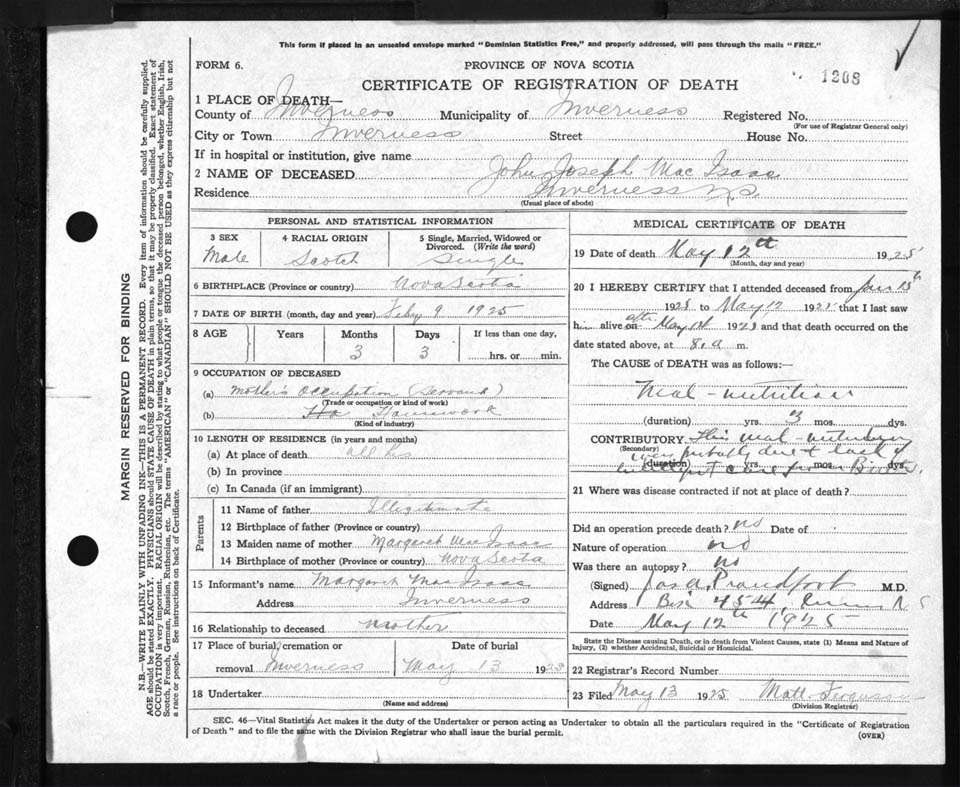 This form if placed in an unsealed envelope marked "Dominion Statistics Free," and properly addressed, will pass through the mails "FREE."
FORM 6.
PROVINCE OF NOVA SCOTIA
CERTIFICATE OF REGISTRATION OF DEATH
1208
1 PLACE OF DEATH—
County of Inverness Municipality of Inverness Registered No.
(For use of Registrar General only)
City or Town Inverness Street House No.
If in hospital or institution, give name
2 NAME OF DECEASED John Joseph Mac Isaac
Residence Inverness N.S.
(Usual place of abode)
PERSONAL AND STATISTICAL INFORMATION
3 SEX 4 RACIAL ORIGIN 5 Single, Married, Widowed or Divorced. (Write the word)
Male Scotch Single
6 BIRTHPLACE (Province or country) Nova Scotia
7 DATE OF BIRTH (month, day and year) Feby 9 1925
8 AGE Years Months Days If less than one day,
3 3 hrs. or min.
9 OCCUPATION OF DECEASED
(a) Mother's Occupation (Servant)
(Trade or occupation or kind of work)
(b) Housework
(Kind of industry)
10 LENGTH OF RESIDENCE (in years and months)
(a) At place of death all his
(b) In province
(c) In Canada (if an immigrant)
Parents
11 Name of father Illegitimate
12 Birthplace of father (Province or country)
13 Maiden name of mother Margaret Mac Isaac
14 Birthplace of mother (Province or country) Nova Scotia
15 Informant's name Margaret Mac Isaac
Address Inverness
16 Relationship to deceased Mother
17 Place of burial, cremation or Date of burial
removal Inverness May 13 1925
18 Undertaker
(Name and address)
MEDICAL CERTIFICATE OF DEATH
19 Date of death May 12th 1925
(Month, day and year)
20 I HEREBY CERTIFY that I attended deceased from
1925 to May 12 1925 that I last saw
h alive on May 12 192 and that death occurred on the
date stated above, at 8 a m.
The CAUSE of DEATH was as follows:
Mal-nutrition
(duration) yrs. 3 mos. dys.
CONTRIBUTORY This mal-nutrition
(Secondary) was probably due to lack of
(duration) yrs. mos. dys.
intelligent care from
21 Where was disease contracted if not at place of death?
Did an operation precede death? no Date of
Nature of operation no
Was there an autopsy? no
(Signed) Jas. A. Proudfoot M.D.
Address Box 454, N S
Date May 12th 1925
State the Disease causing Death, or in death from Violent Causes, state (1) Means and Nature of
Injury, (2) whether Accidental, Suicidal or Homicidal.
22 Registrar's Record Number
23 Filed May 13 1925 Matt. Ferguson
(Division Registrar)
SEC. 46—Vital Statistics Act makes it the duty of the Undertaker or person acting as Undertaker to obtain all the particulars required in the "Certificate of Registration
of Death" and to file the same with the Division Registrar who shall issue the burial permit.
(OVER)
MARGIN RESERVED FOR BINDING
N.B.—WRITE PLAINLY WITH UNFADING INK—THIS IS A PERMANENT RECORD. Every item of information should be carefully supplied.
AGE should be stated EXACTLY. PHYSICIANS should STATE CAUSE OF DEATH in plain terms, so that it may be properly classified. Exact statement of
OCCUPATION is very important. RACIAL ORIGIN will be described by stating to what people or tongue the deceased person belonged, whether English, Irish,
Scotch, French, German, Russian, Ruthenian, etc. The terms "AMERICAN" or "CANADIAN" SHOULD NOT BE USED as they express citizenship but not
a race or people. See instructions on back of Certificate.